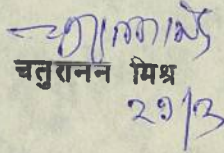 चतुरानन मिश्र
29/3